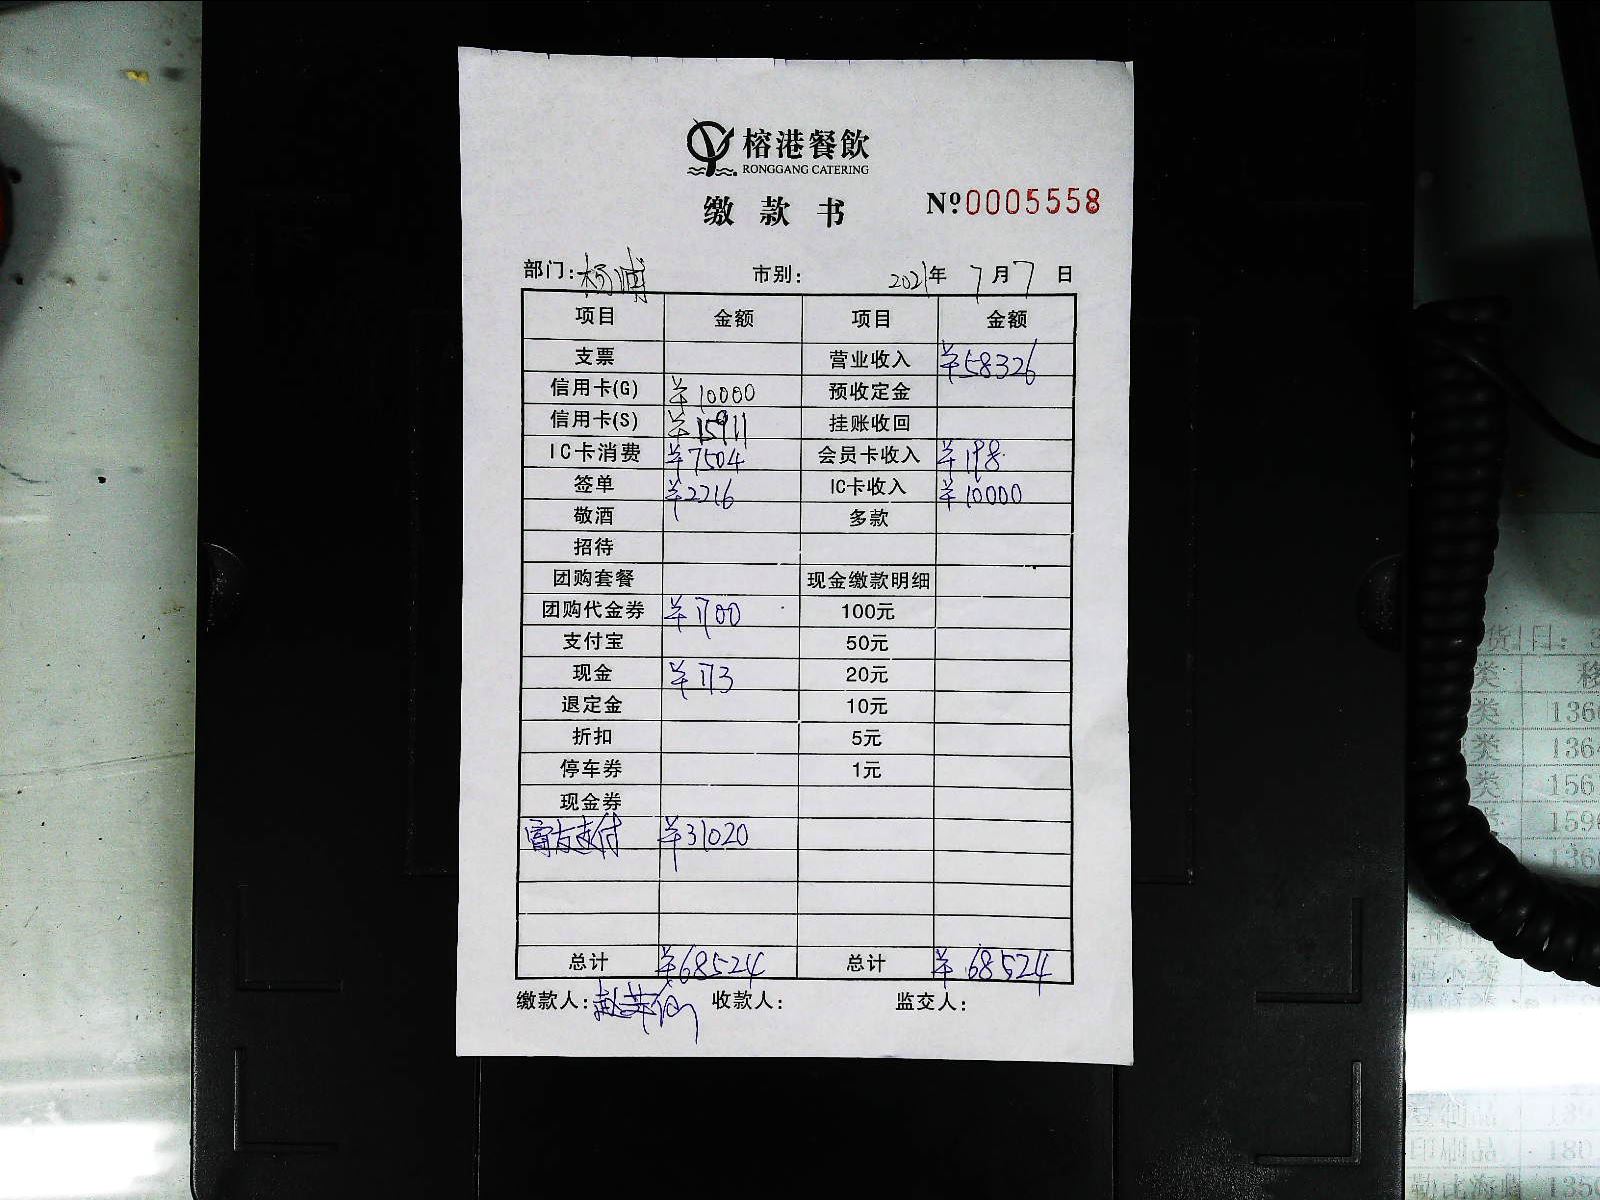 榕港餐飲
RONGGANG CATERING
缴款书 №0005558
部门：杨浦 市别： 2021年 7月7日
项目 金额 项目 金额
支票 营业收入 ¥58326
信用卡(G) ¥10000 预收定金
信用卡(S) ¥15911 挂账收回
IC卡消费 ¥7504 会员卡收入 ¥198
签单 ¥2216 IC卡收入 ¥10000
敬酒 多款
招待
团购套餐 现金缴款明细
团购代金券 ¥1700 100元
支付宝 50元
现金 ¥173 20元
退定金 10元
折扣 5元
停车券 1元
现金券
富友支付 ¥31020
总计 ¥68524 总计 ¥68524
缴款人： 收款人： 监交人：